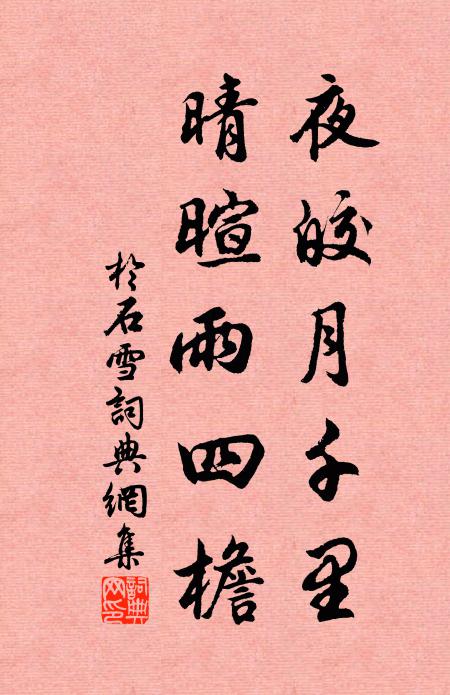 夜皎月千里
晴暄雨四檐
於石雪詞典網集
詞典網印